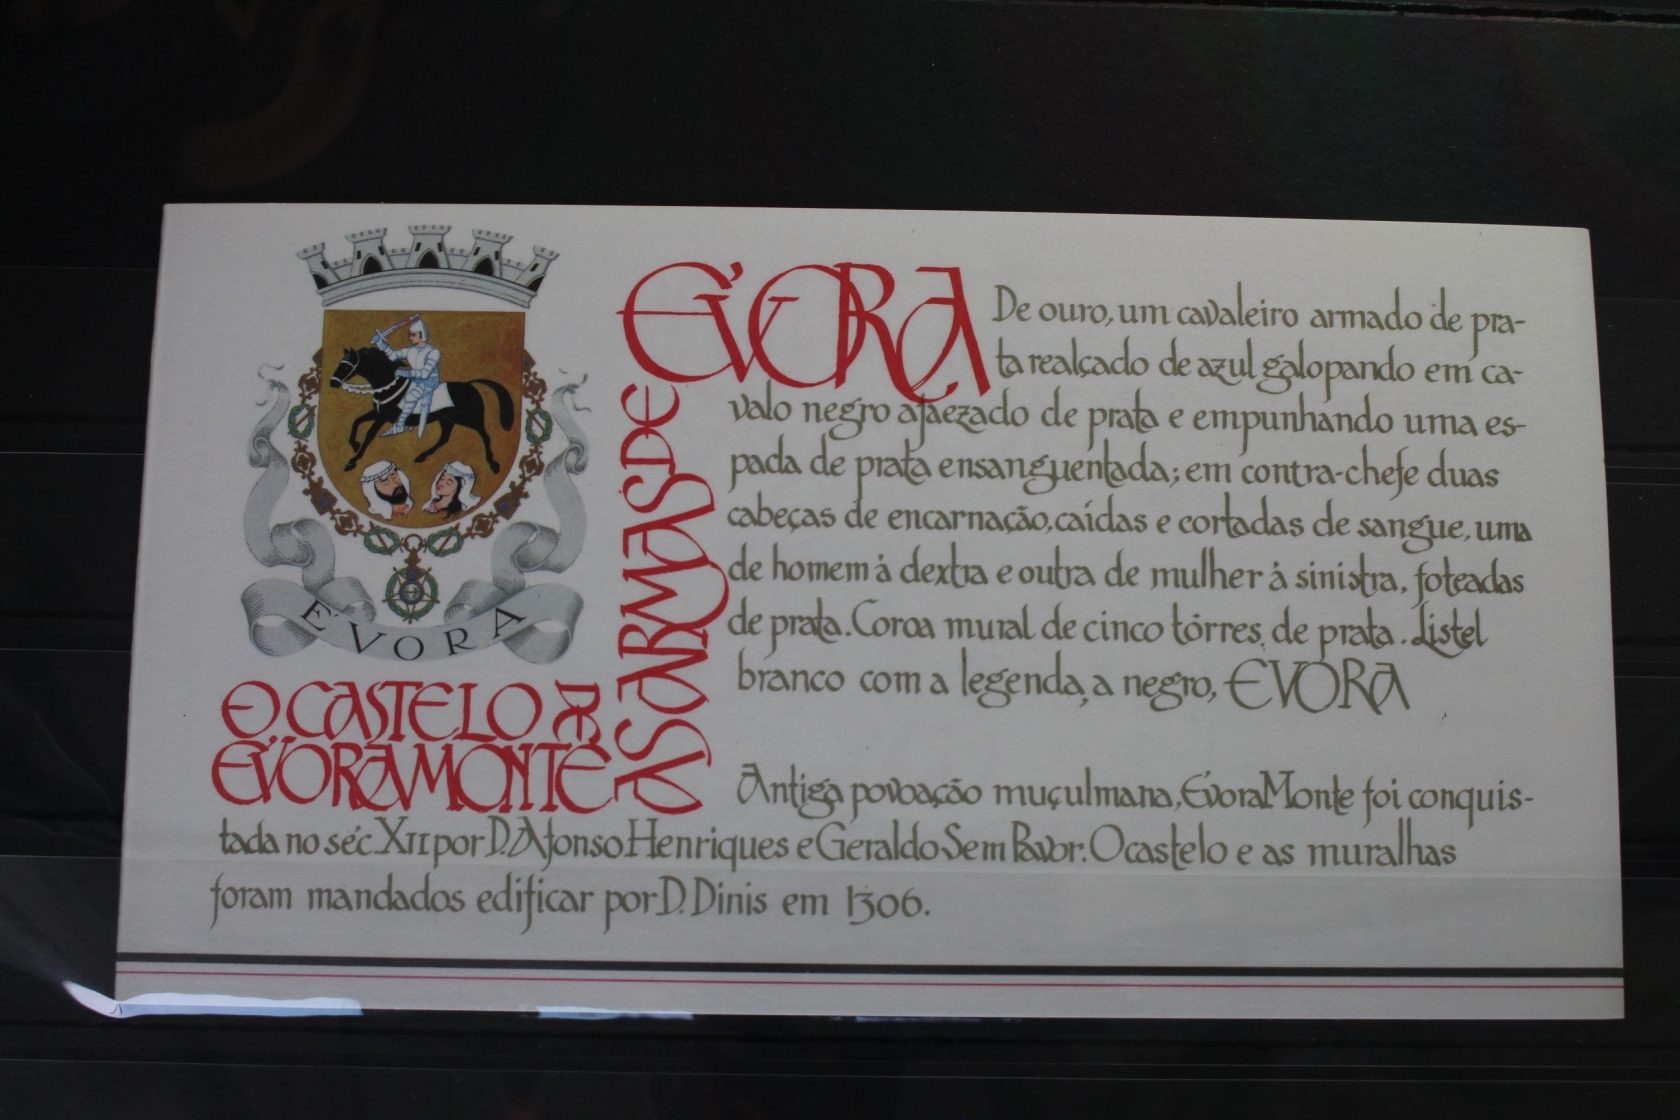 EVORA
O CASTELO DE
ÉVORAMONTE
AS ARMAS DE
ÉVORA
De ouro, um cavaleiro armado de pra-
ta realçado de azul galopando em ca-
valo negro ajaezado de prata e empunhando uma es-
pada de prata ensanguentada; em contra-chefe duas
cabeças de encarnação, caídas e cortadas de sangue, uma
de homem à dextra e outra de mulher à sinistra, foteadas
de prata. Coroa mural de cinco tôrres de prata. Listel
branco com a legenda, a negro, EVORA
Antiga povoação muçulmana, ÉvoraMonte foi conquis-
tada no séc. XII por D. Afonso Henriques e Geraldo Sem Pavor. O castelo e as muralhas
foram mandados edificar por D. Dinis em 1306.